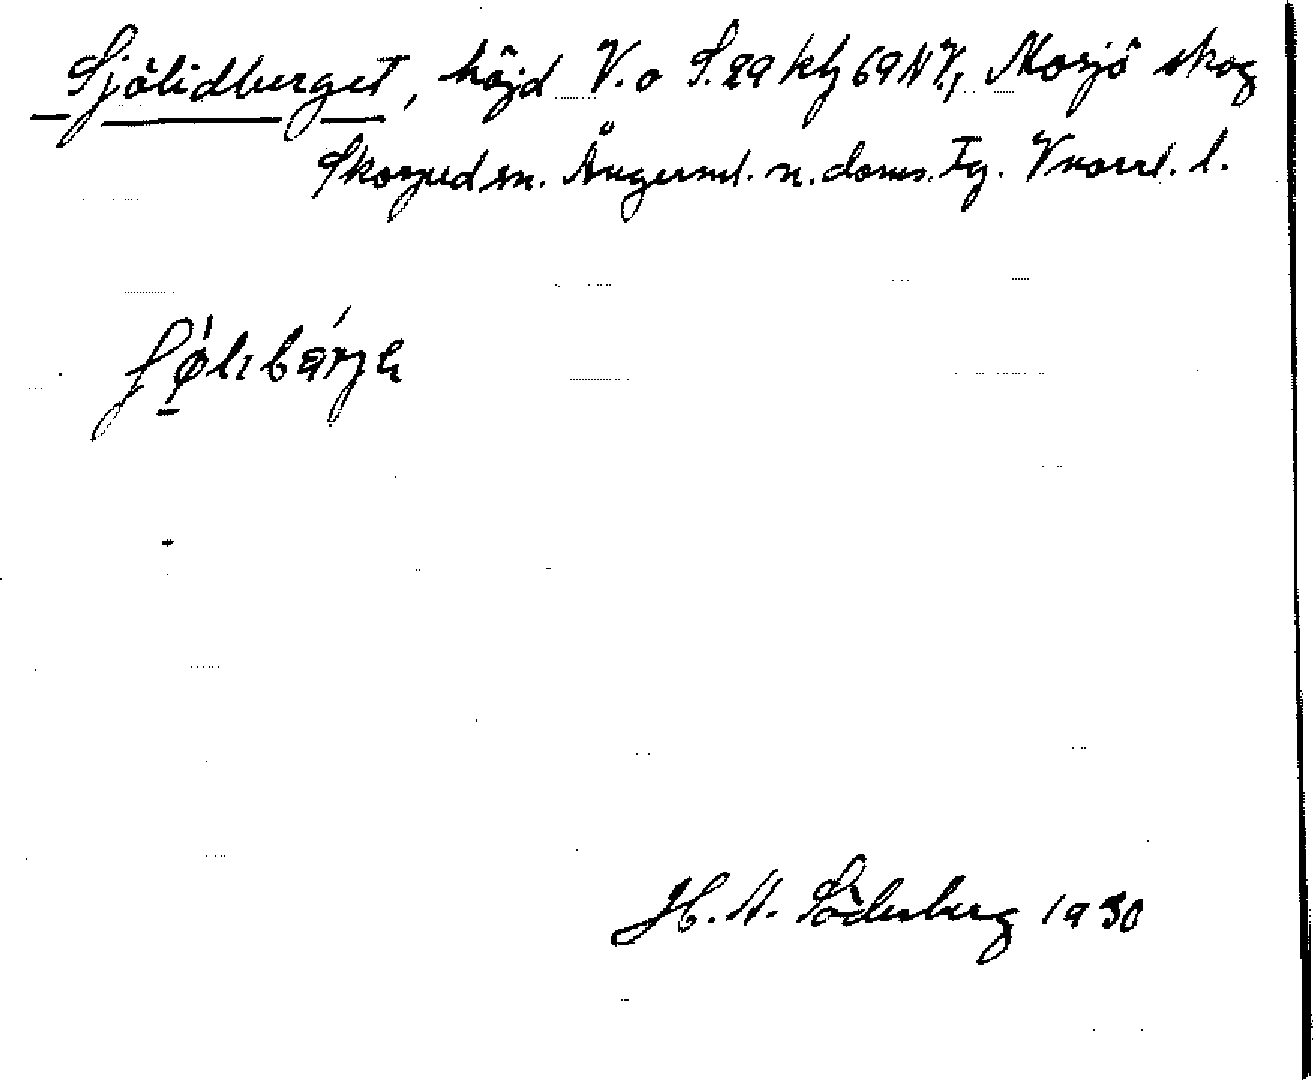 Sjölidberget, höjd V. o S. 29 klg 69 NV, Mosjö skog
Skorped sn. Ångerml. n. doms. Tg. Vnorrl. l.
H. A. Söderberg 1930